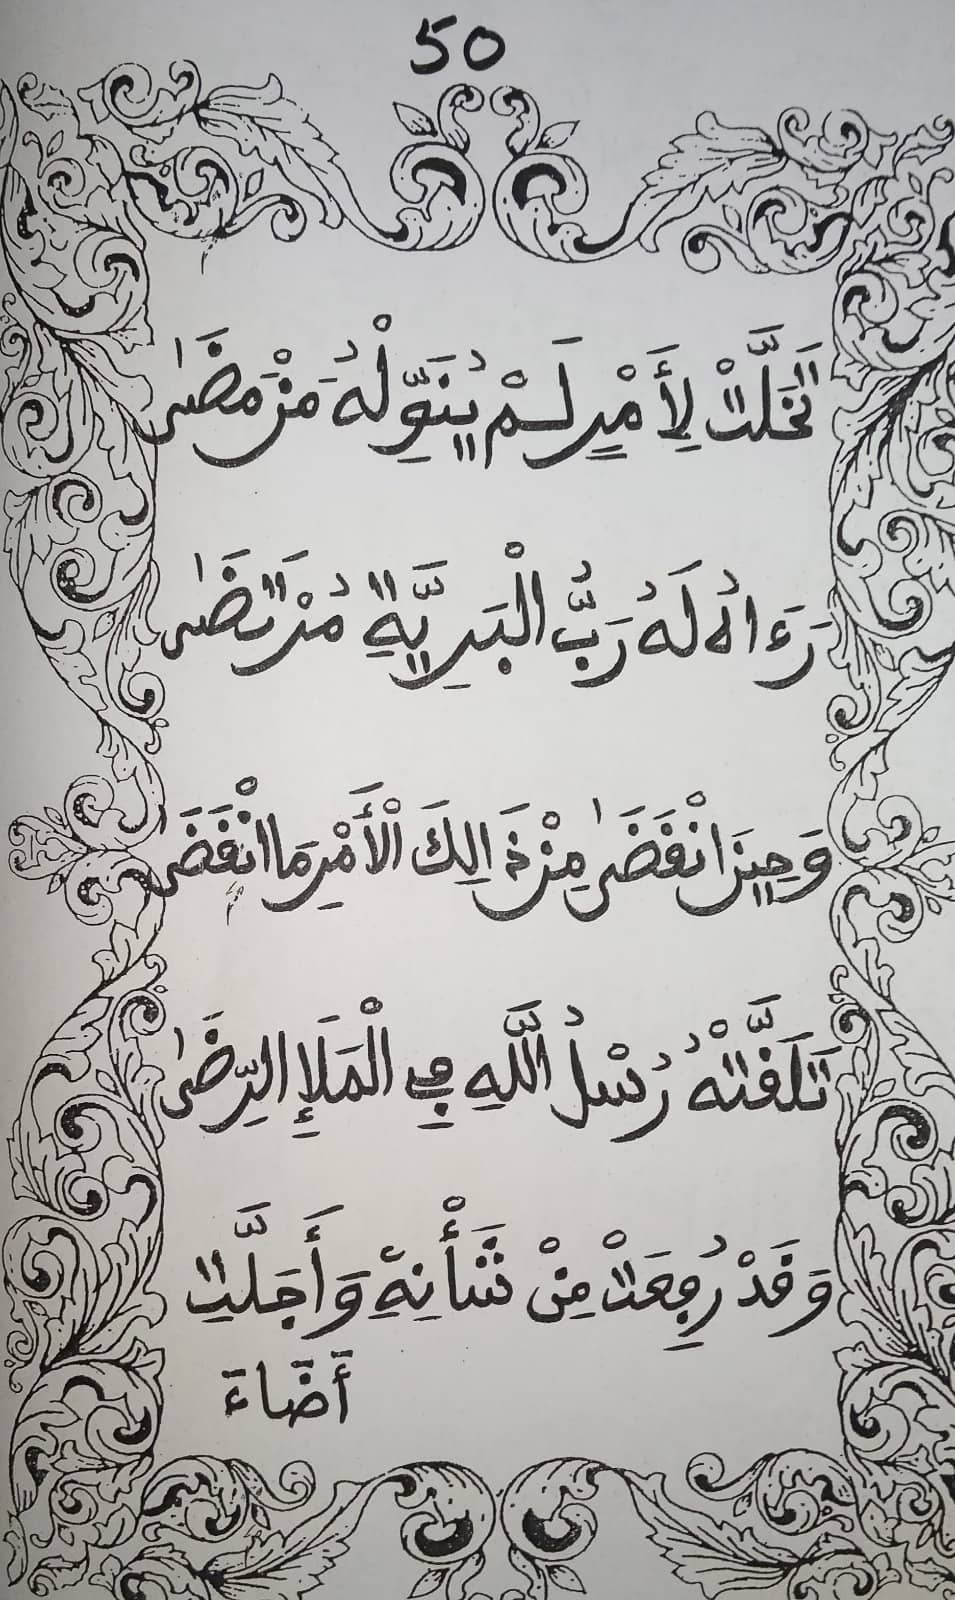 50
تَخَلَّتْ لِأَمْرٍ لَمْ يُنَوِّلْهُ مَنْ مَضَىٰ
رَءَاهُ لَهُ رَبُّ الْبَرِيَّةِ مُرْتَضَىٰ
وَحِينَ انْقَضَىٰ مِنْ ذَالِكَ الْأَمْرِ مَا انْقَضَىٰ
تَلَقَّتْهُ رُسْلُ اللَّهِ فِي الْمَلَإِ الرِّضَىٰ
وَقَدْ رَفَعَتْ مِنْ شَأْنِهِ وَأَجَلَّتِ
أَضَاءَ